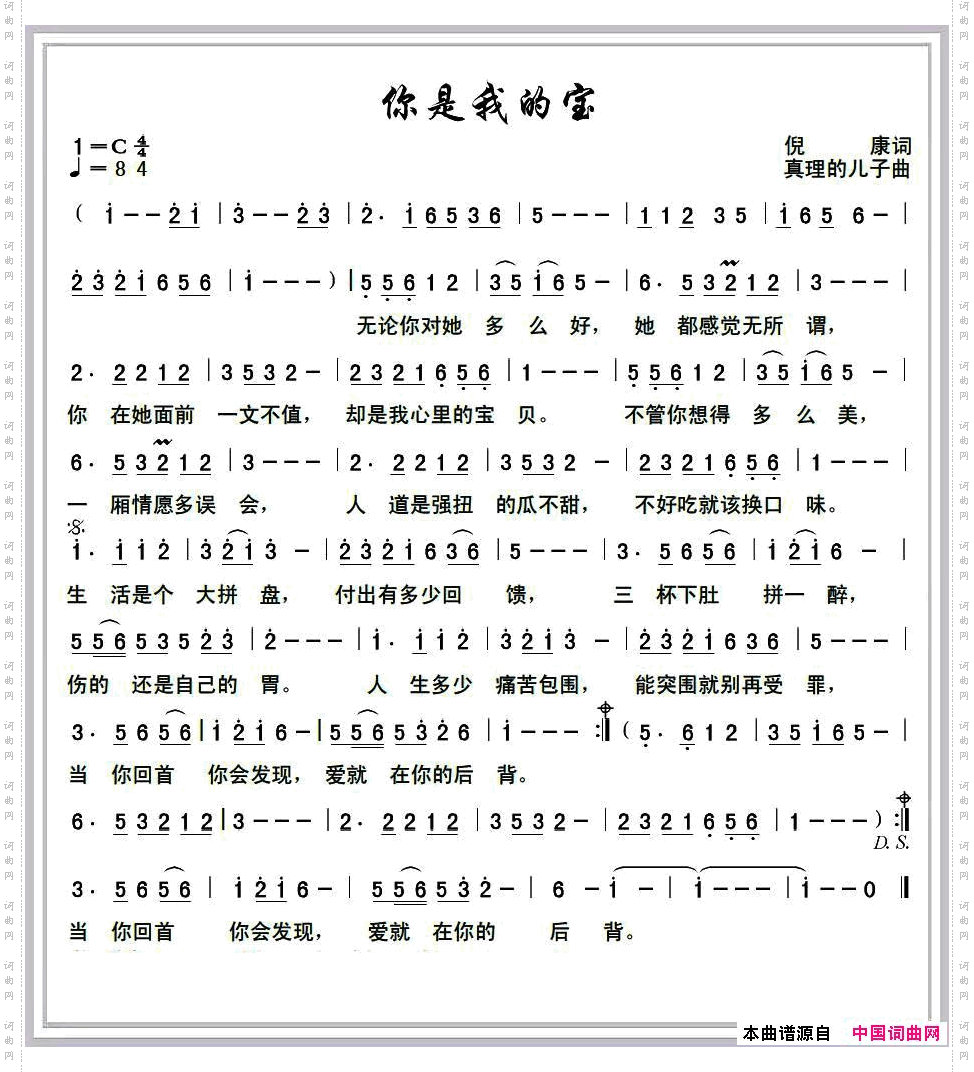 你是我的宝
1=C 4/4
倪 康词
♩=84
真理的儿子曲
( i - - 2̇ i | 3̇ - - 2̇ 3̇ | 2̇ · i 6 5 3 6 | 5 - - - | 1 1 2 3 5 | i 6 5 6 - |
2̇ 3̇ 2̇ i 6 5 6 | i - - - ) | 5̣ 5̣ 6̣ 1 2 | 3 5 i 6 5 - | 6 · 5 3 2 1 2 | 3 - - - |
无论你对她 多 么 好， 她 都感觉无所 谓，
2 · 2 2 1 2 | 3 5 3 2 - | 2 3 2 1 6̣ 5̣ 6̣ | 1 - - - | 5̣ 5̣ 6̣ 1 2 | 3 5 i 6 5 - |
你 在她面前 一文不值， 却是我心里的宝 贝。 不管你想得 多 么 美，
6 · 5 3 2 1 2 | 3 - - - | 2 · 2 2 1 2 | 3 5 3 2 - | 2 3 2 1 6̣ 5̣ 6̣ | 1 - - - |
一 厢情愿多误 会， 人 道是强扭 的瓜不甜， 不好吃就该换口 味。
𝄋
i · i i 2̇ | 3̇ 2̇ i 3̇ - | 2̇ 3̇ 2̇ i 6 3 6 | 5 - - - | 3 · 5 6 5 6 | i 2̇ i 6 - |
生 活是个 大拼 盘， 付出有多少回 馈， 三 杯下肚 拼一 醉，
5 5 6 5 3 5 2̇ 3̇ | 2̇ - - - | i · i i 2̇ | 3̇ 2̇ i 3̇ - | 2̇ 3̇ 2̇ i 6 3 6 | 5 - - - |
伤的 还是自己的 胃。 人 生多少 痛苦包围， 能突围就别再受 罪，
3 · 5 6 5 6 | i 2̇ i 6 - | 5 5 6 5 3̇ 2̇ 6 | i - - - :| ( 5̣ · 6̣ 1 2 | 3 5 i 6 5 - |
当 你回首 你会发现， 爱就 在你的后 背。
6 · 5 3 2 1 2 | 3 - - - | 2 · 2 2 1 2 | 3 5 3 2 - | 2 3 2 1 6̣ 5̣ 6̣ | 1 - - - ) :|
D. S.
3 · 5 6 5 6 | i 2̇ i 6 - | 5 5 6 5 3̇ 2̇ - | 6 - i - | i - - - | i - - 0 ||
当 你回首 你会发现， 爱就 在你的 后 背。
本曲谱源自 中国词曲网